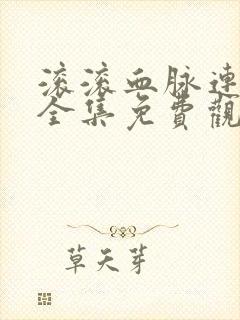 滚滚血脉連
全集免費觀
草天芽